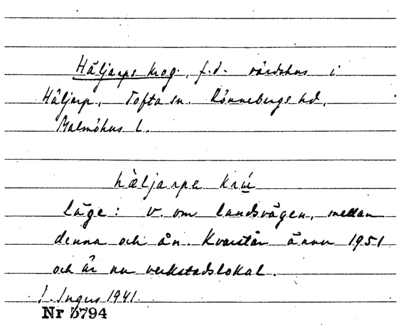 Häljarps krog, f.d. värdshus i
Häljarp, Tofta sn. Rönnebergs hd,
Malmöhus l.
hàljarpa krú
Läge: V. om landsvägen, mellan
denna och ån. Kvarstår ännu 1951
och är nu verkstadslokal.
I. Ingers 1941.
Nr 5794